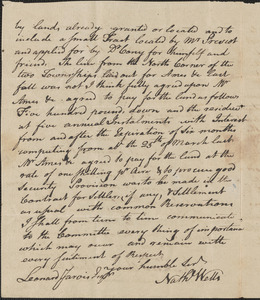 by lands already granted or located and to
include a small Tract located by Mr Treviot
and applied for by Dr Cony for himself and
friend. The line from the North Corner of the
two Townships laid out for Ames &c last
fall was not I think fully agreed upon Mr
Ames &c agreed to pay for the land as follows
Five hundred pound down and the residue
at five annual Instalments with Interest
from and after the Expiration of six months
computing from at the 25th of March last
Mr Ames &c agreed to pay for the land at the
rate of one shilling pr Acre & to procure good
Security Provision was to be made in the
Contract for Settlers if any & Settlement
as usual with common Reservations
I shall from time to time communicate
to the Committee every thing of importance
which may occur and remain with
every sentiment of Respect
your humble Servt
Leonard Jarvis Esqr Nathl Wells